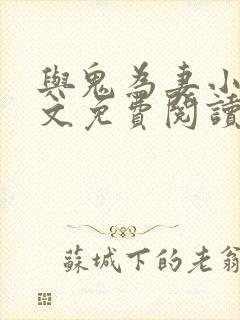 與鬼為妻小
文免費閱讀
蘇城下的老翁